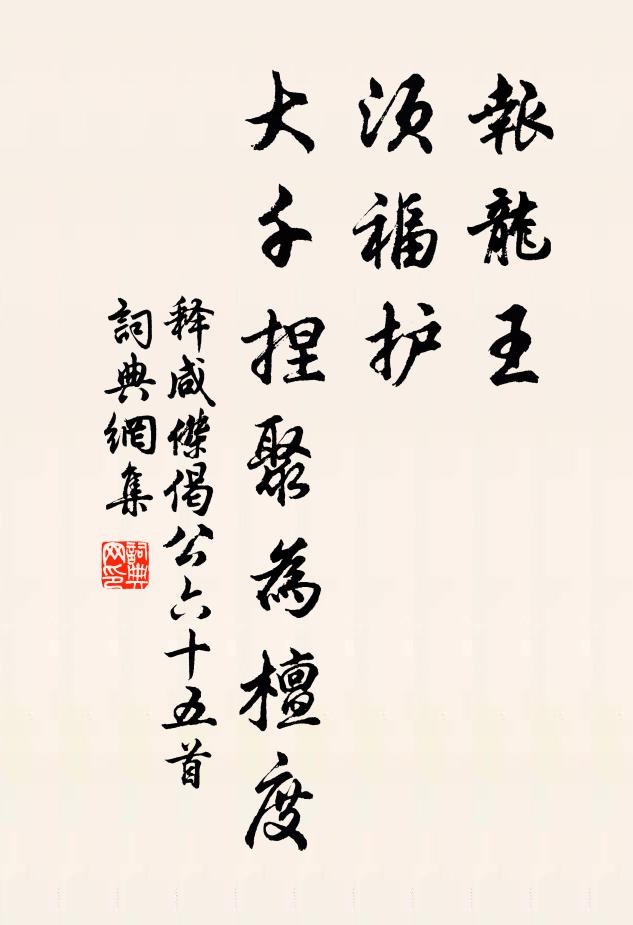 報龍王
须福护
大千捏聚為檀度
释咸傑偈公六十五首
詞典網集
詞典网印